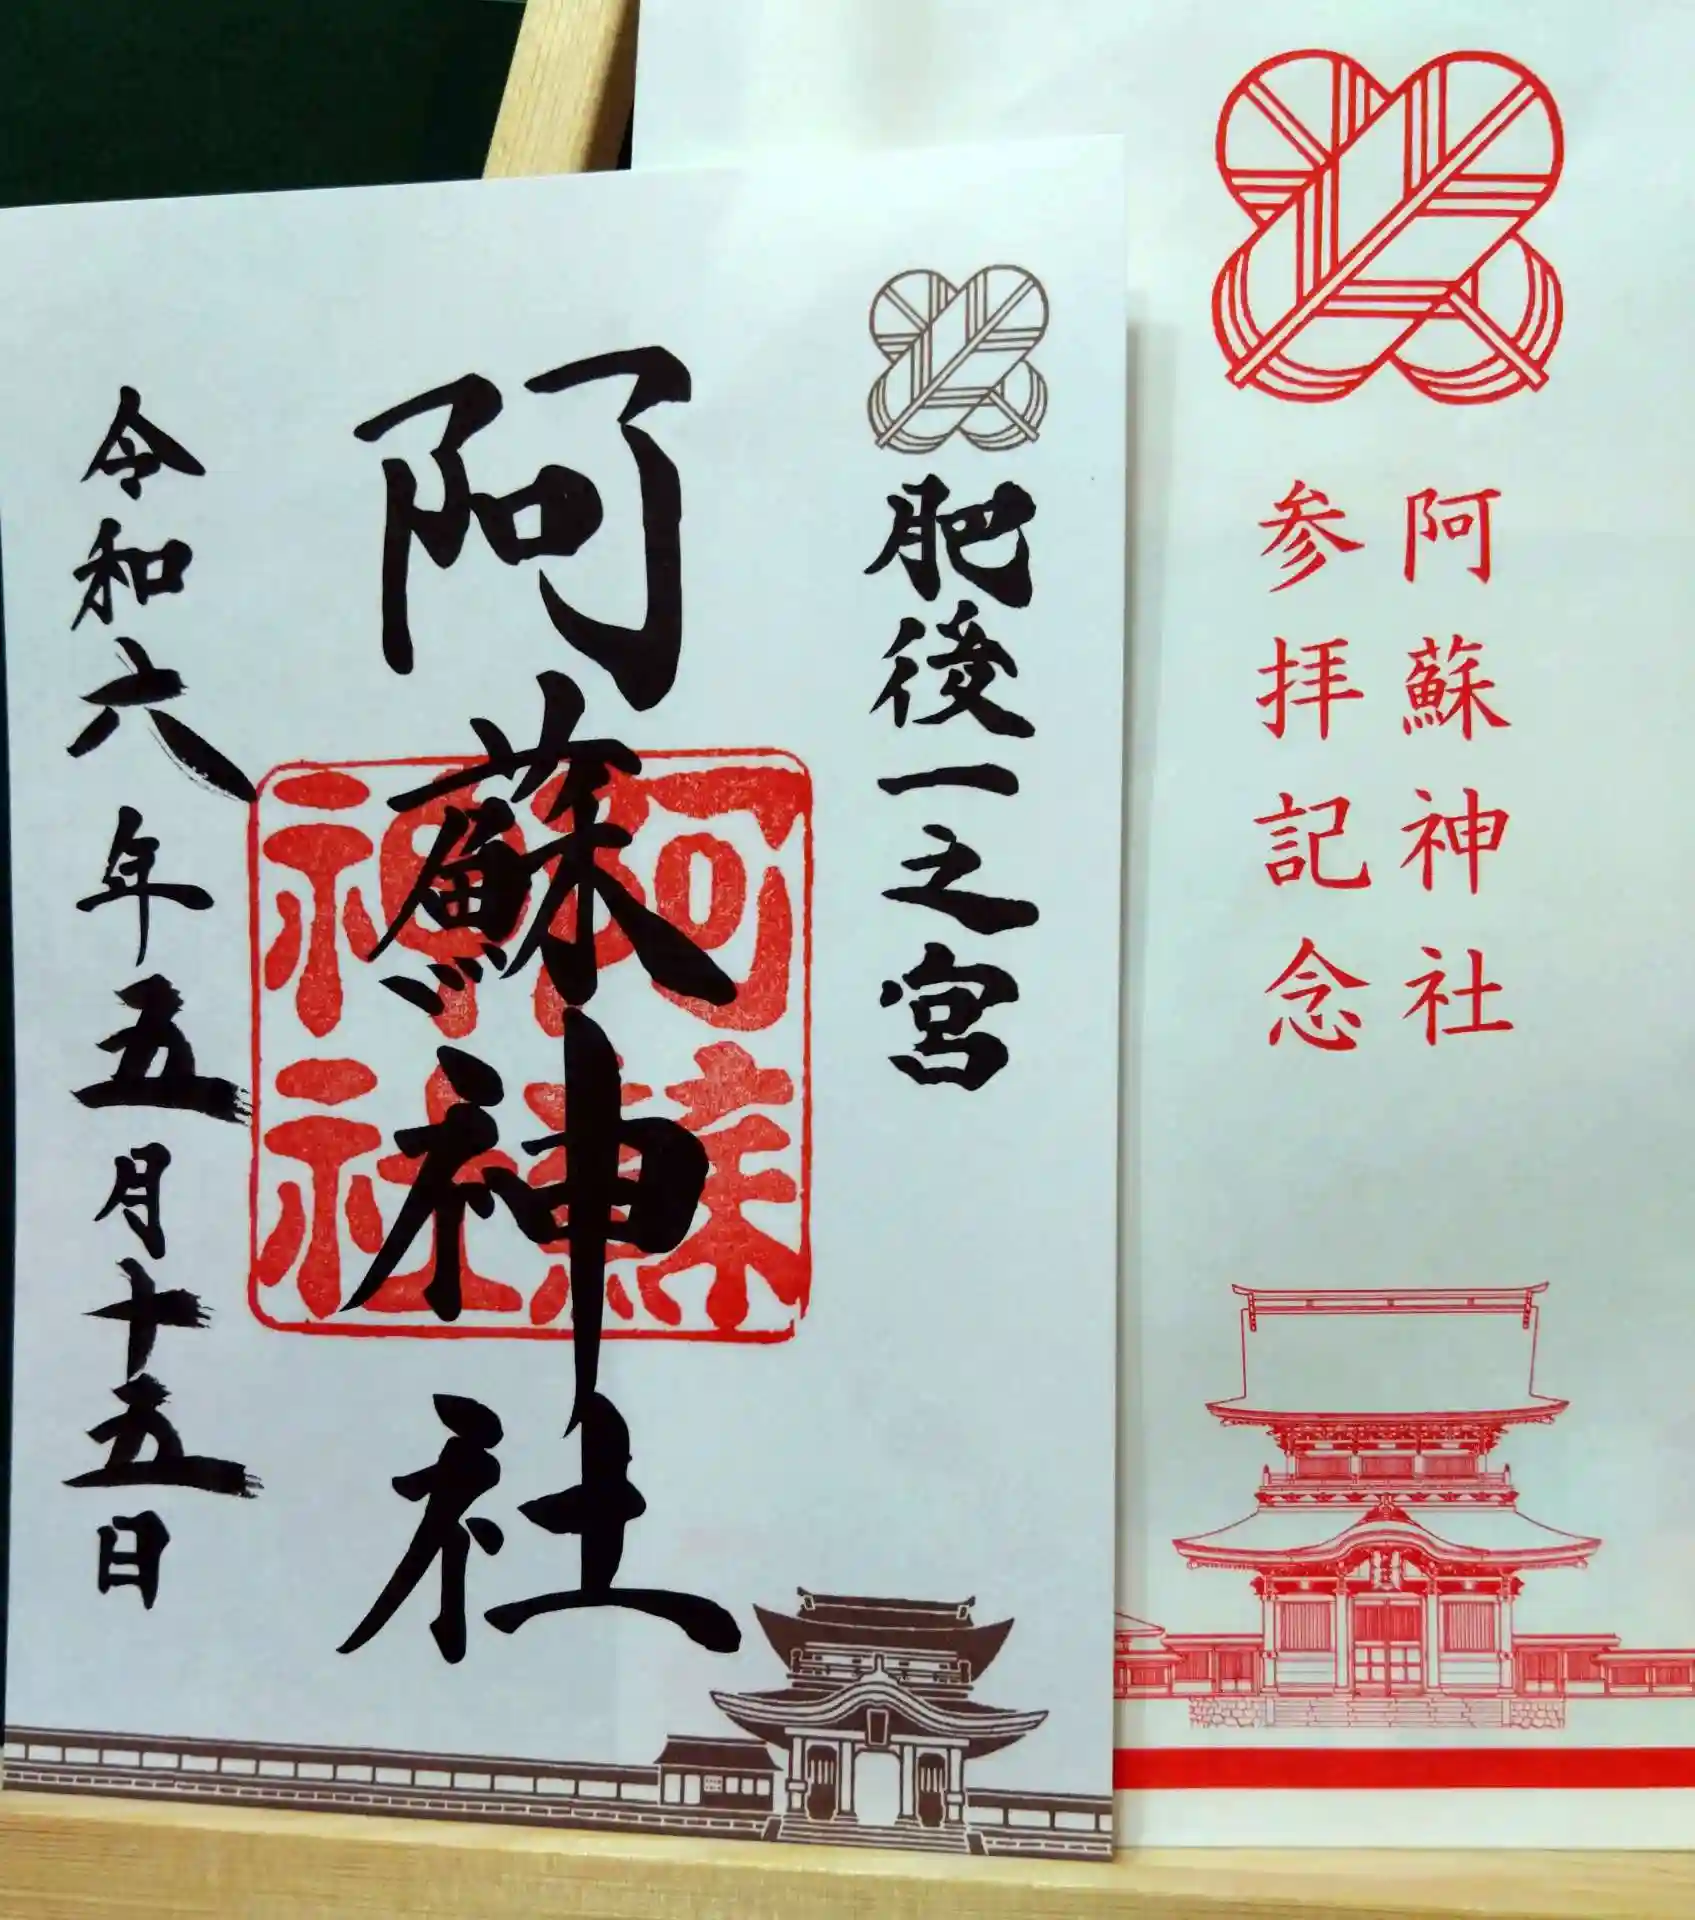 肥後一之宮
阿蘇神社
阿蘇神社
令和六年五月十五日
阿蘇神社
参拝記念